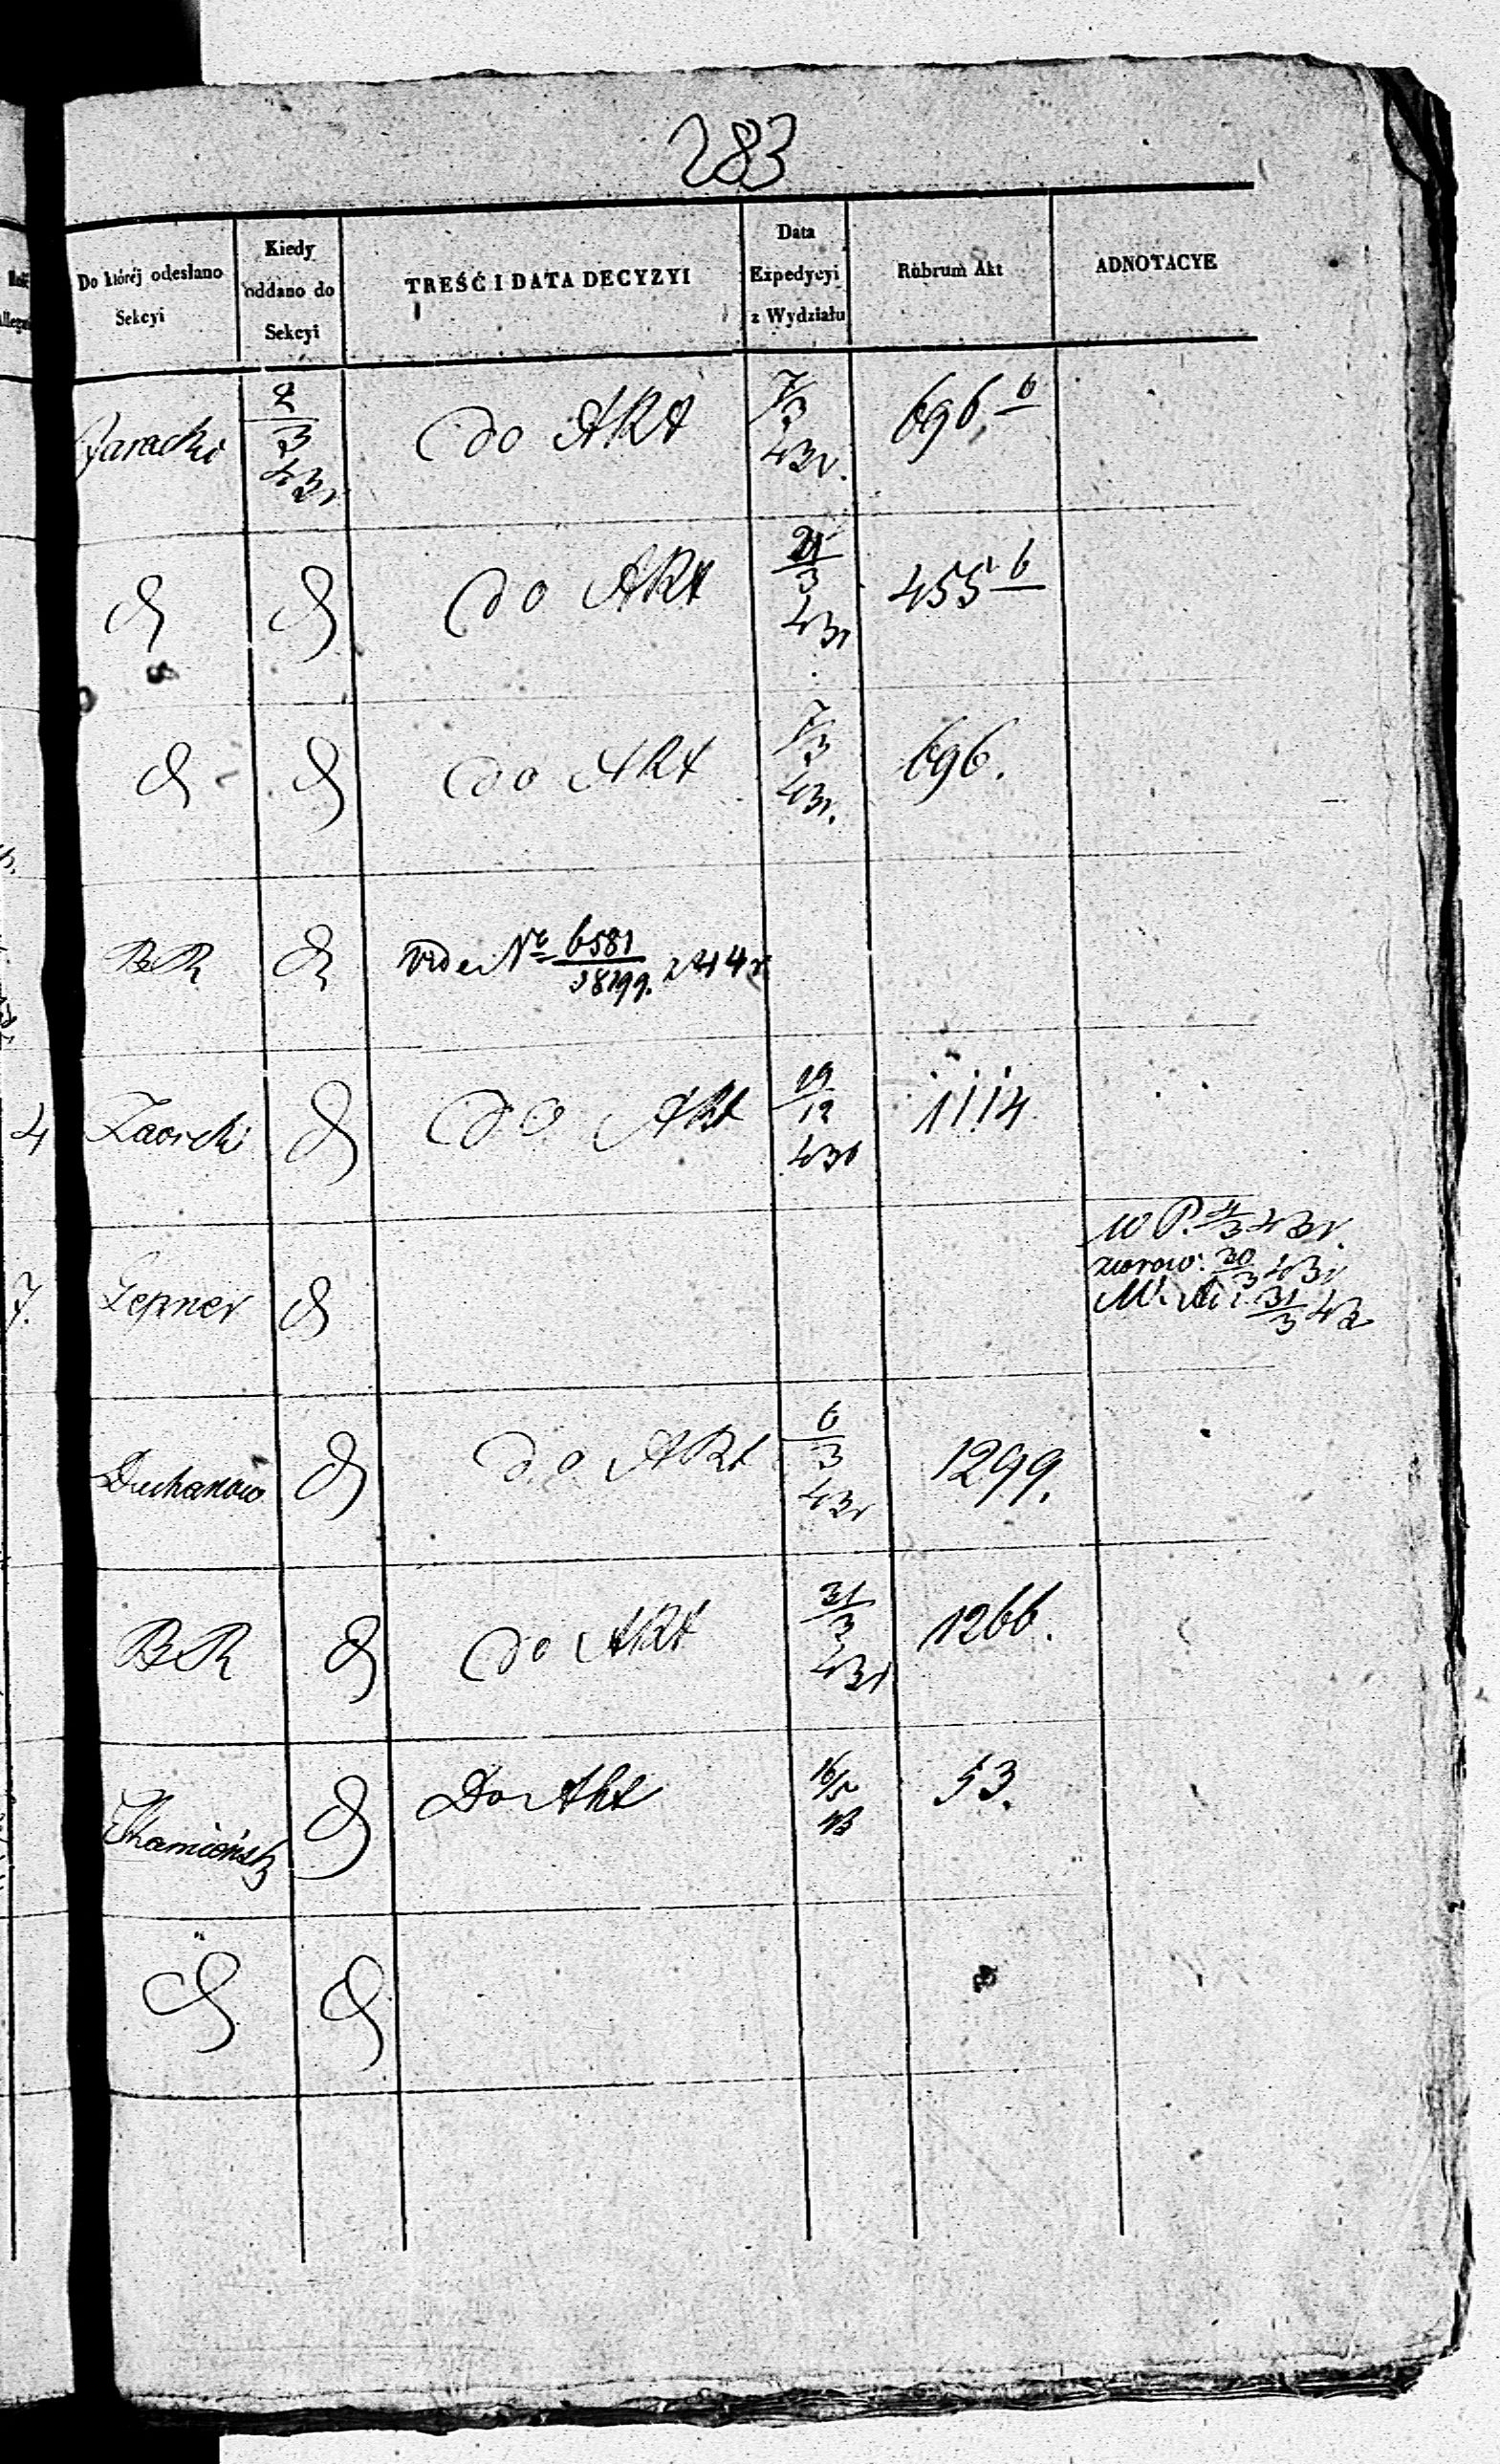 283
Do któréj odesłano Sekcyi
Kiedy oddano do Sekcyi
TREŚĆ I DATA DECYZYI
Data Expedycyi z Wydziału
Rubrum Akt
ADNOTACYE
Jaracki 2/3 43r Do Akt 7/3 43r. 696. b
Do Akt 21/3 43r 455 b
Do Akt 7/3 43r. 696.
BR vide No 6581/38199. z 44r
Zaorski Do Akt 19/12 43r 1114
w P. 4/3 43r.
zwrow: 20/3 43r
Lepner 31/3 43
Duchanow Do Akt 6/3 43r 1299.
BR Do Akt 31/3 43r 1266.
Kamieńsk Do Akt 16/5 43 53.
4
7.